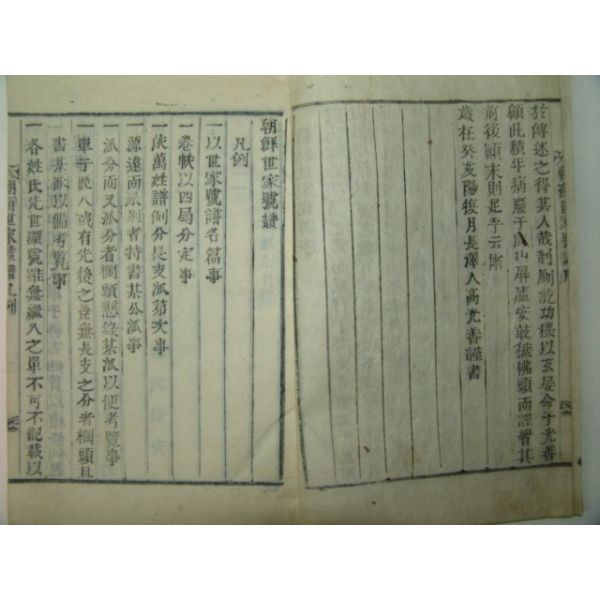 於傳述之得其人哉剞劂設功猥以玄晏命于光善
顧此積年病廢于
前後顚末則足乎云爾
歲在癸亥陽復月長澤人高光善謹書
朝鮮世家號譜
凡例
一以世家號譜名篇事
一卷帙以四局分定事
一依萬姓譜例分長支派第次事
一源遠而派別者特書某公派事
一派分而又派分者欄頭懸錄某派以便考覽事
一單子晩入或有先後之差無長支之分者欄頭且
書某派以備考覽事
一各姓氏先世顯號雖無繼入之單不可不記載以